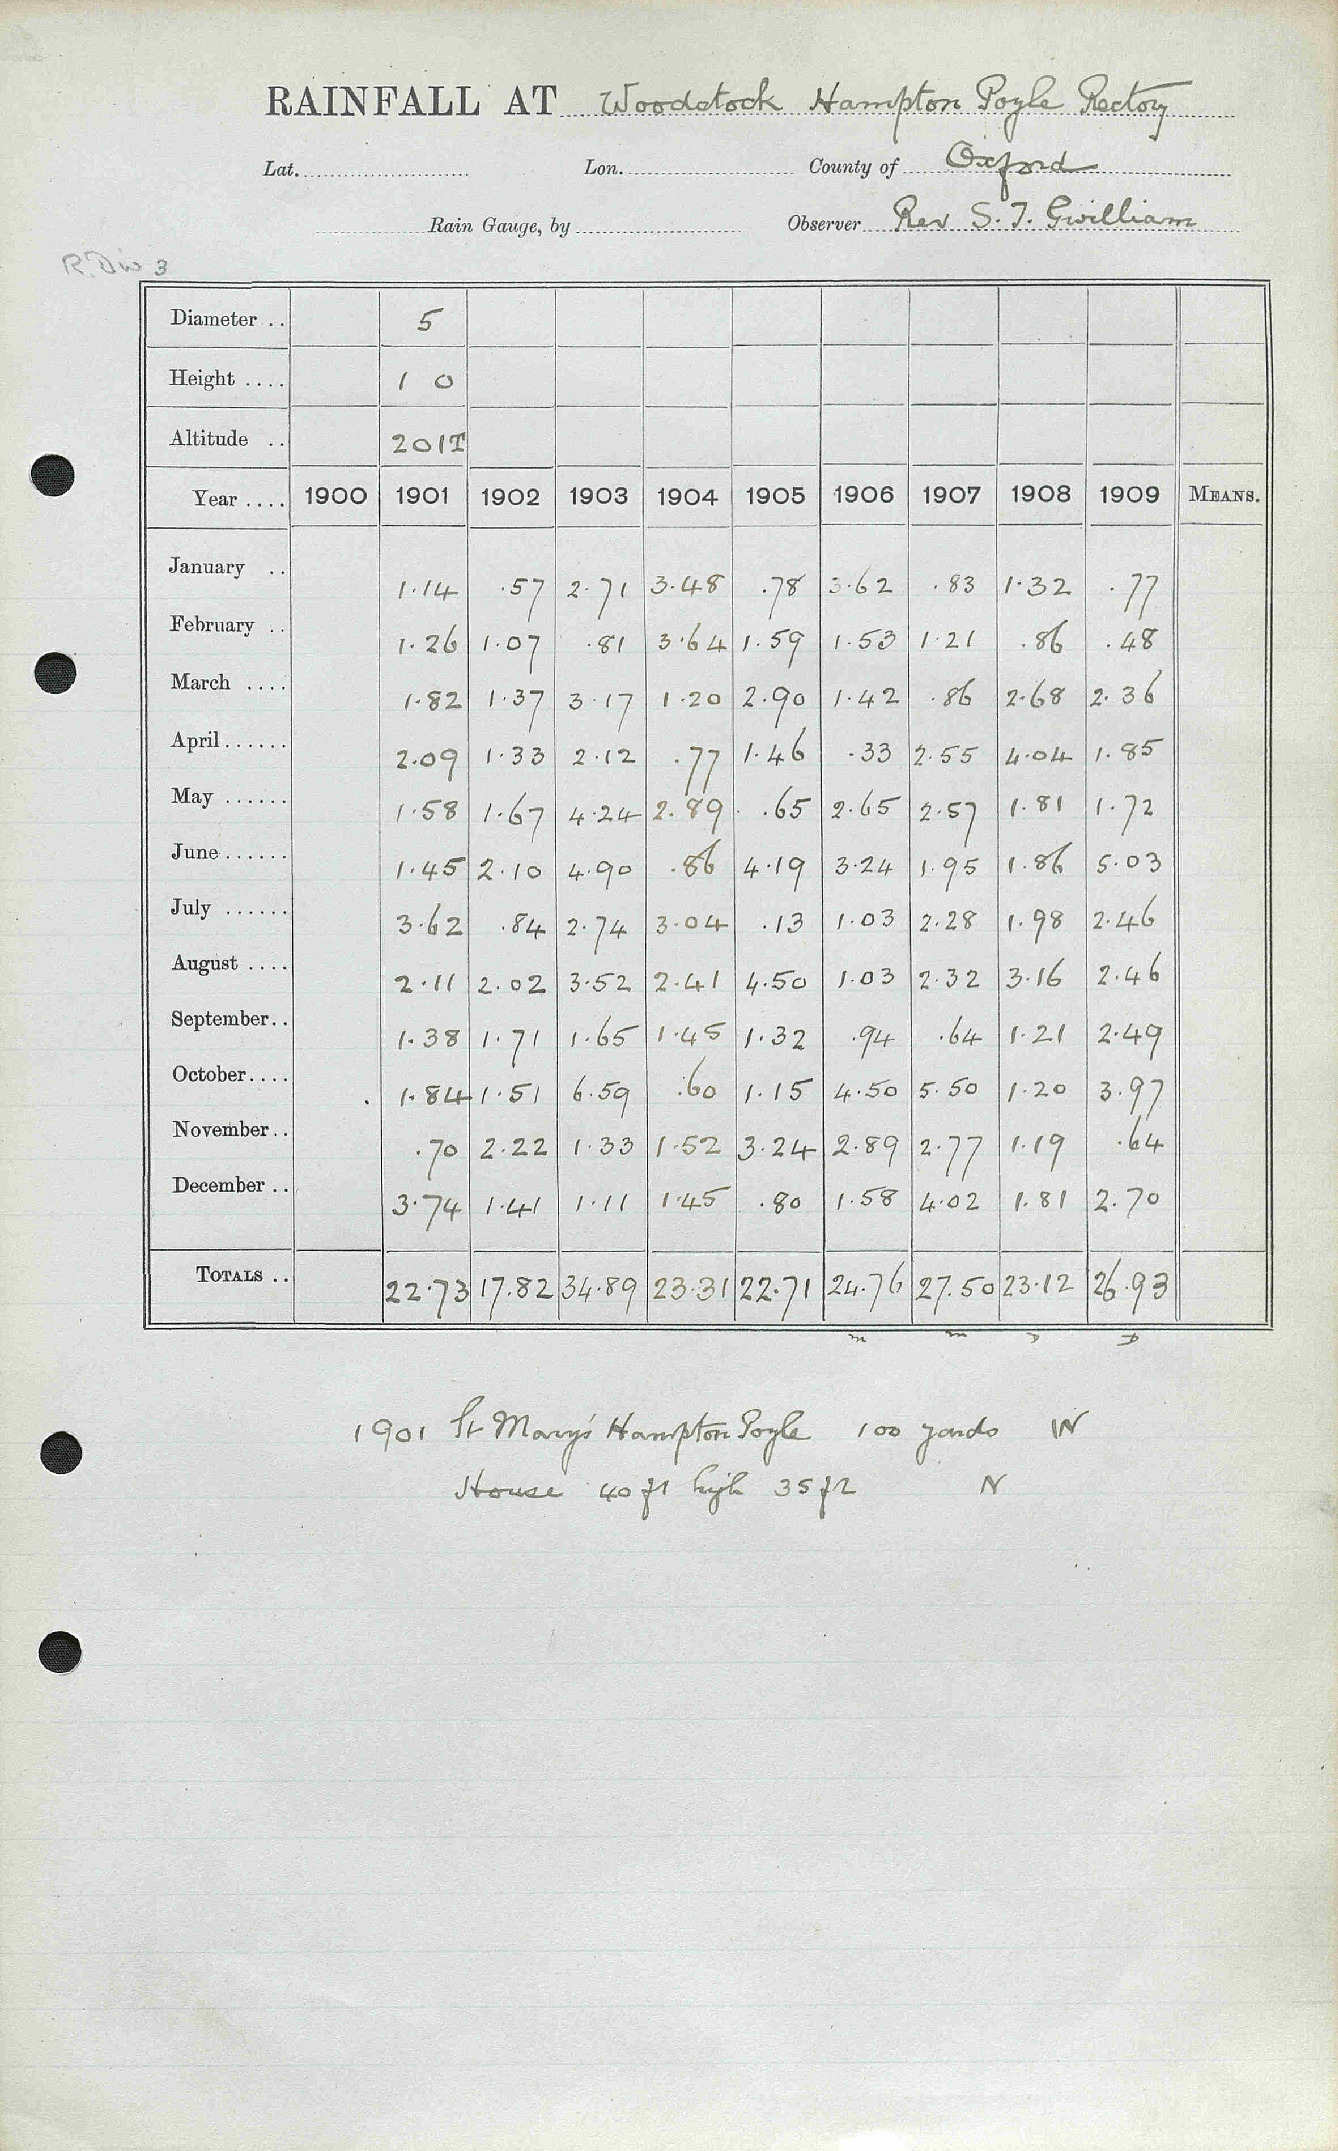 RAINFALL AT Woodstock Hampton Poyle Rectory
Lat. Lon. County of Oxford
Rain Gauge, by Observer Rev S. J. Gwilliam
R. Div 3
Diameter .. 5
Height .... 1 0
Altitude .. 201T
Year .... 1900 1901 1902 1903 1904 1905 1906 1907 1908 1909 MEANS.
January .. 1.14 .57 2.71 3.48 .78 3.62 .83 1.32 .77
February .. 1.26 1.07 .81 3.64 1.59 1.53 1.21 .86 .48
March .... 1.82 1.37 3.17 1.20 2.90 1.42 .86 2.68 2.36
April...... 2.09 1.33 2.12 .77 1.46 .33 2.55 4.04 1.85
May ...... 1.58 1.67 4.24 2.89 .65 2.65 2.57 1.81 1.72
June...... 1.45 2.10 4.90 .86 4.19 3.24 1.95 1.86 5.03
July ...... 3.62 .84 2.74 3.04 .13 1.03 2.28 1.98 2.46
August .... 2.11 2.02 3.52 2.41 4.50 1.03 2.32 3.16 2.46
September.. 1.38 1.71 1.65 1.45 1.32 .94 .64 1.21 2.49
October.... 1.84 1.51 6.59 .60 1.15 4.50 5.50 1.20 3.97
November.. .70 2.22 1.33 1.52 3.24 2.89 2.77 1.19 .64
December .. 3.74 1.41 1.11 1.45 .80 1.58 4.02 1.81 2.70
TOTALS .. 22.73 17.82 34.89 23.31 22.71 24.76 27.50 23.12 26.93
m m D
1901 St Mary's Hampton Poyle 100 yards W
House 40 ft high 35 ft N